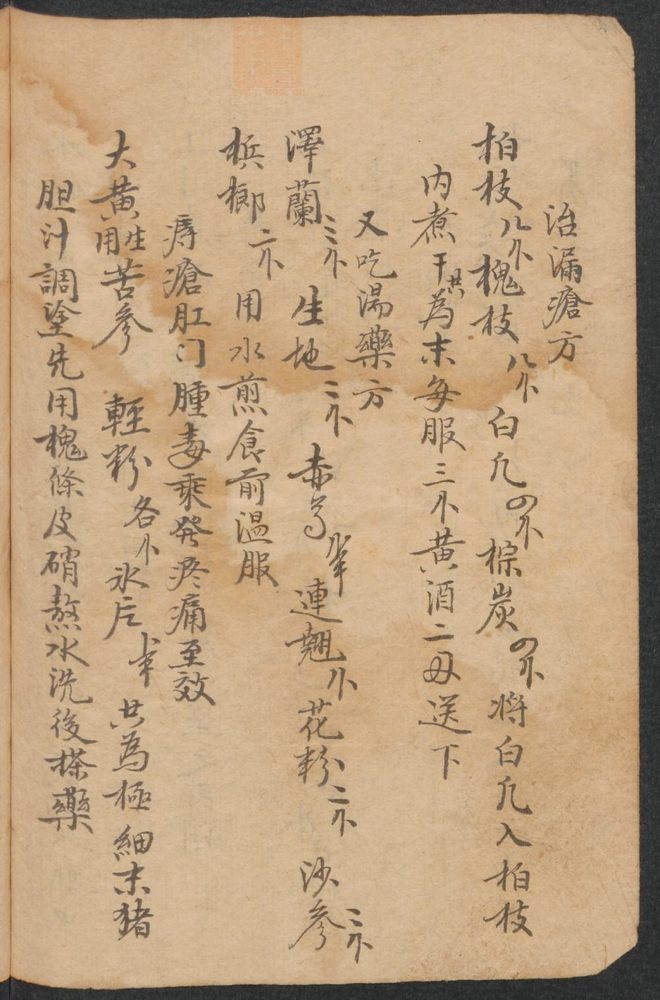 治漏瘡方
柏枝八个槐枝八个白凡四个棕炭四个将白凡入柏枝
内煮干共為末每服三个黄酒二母送下
又吃湯藥方
澤蘭三个生地三个赤芍个半連翹个花粉二个沙參三个
槟榔二个用水煎食前温服
痔瘡肛门腫毒乘發疼痛至效
大黄生用苦參輕粉各个氷片半共為極細末猪
胆汁調塗先用槐條皮硝熬水洗後搽藥